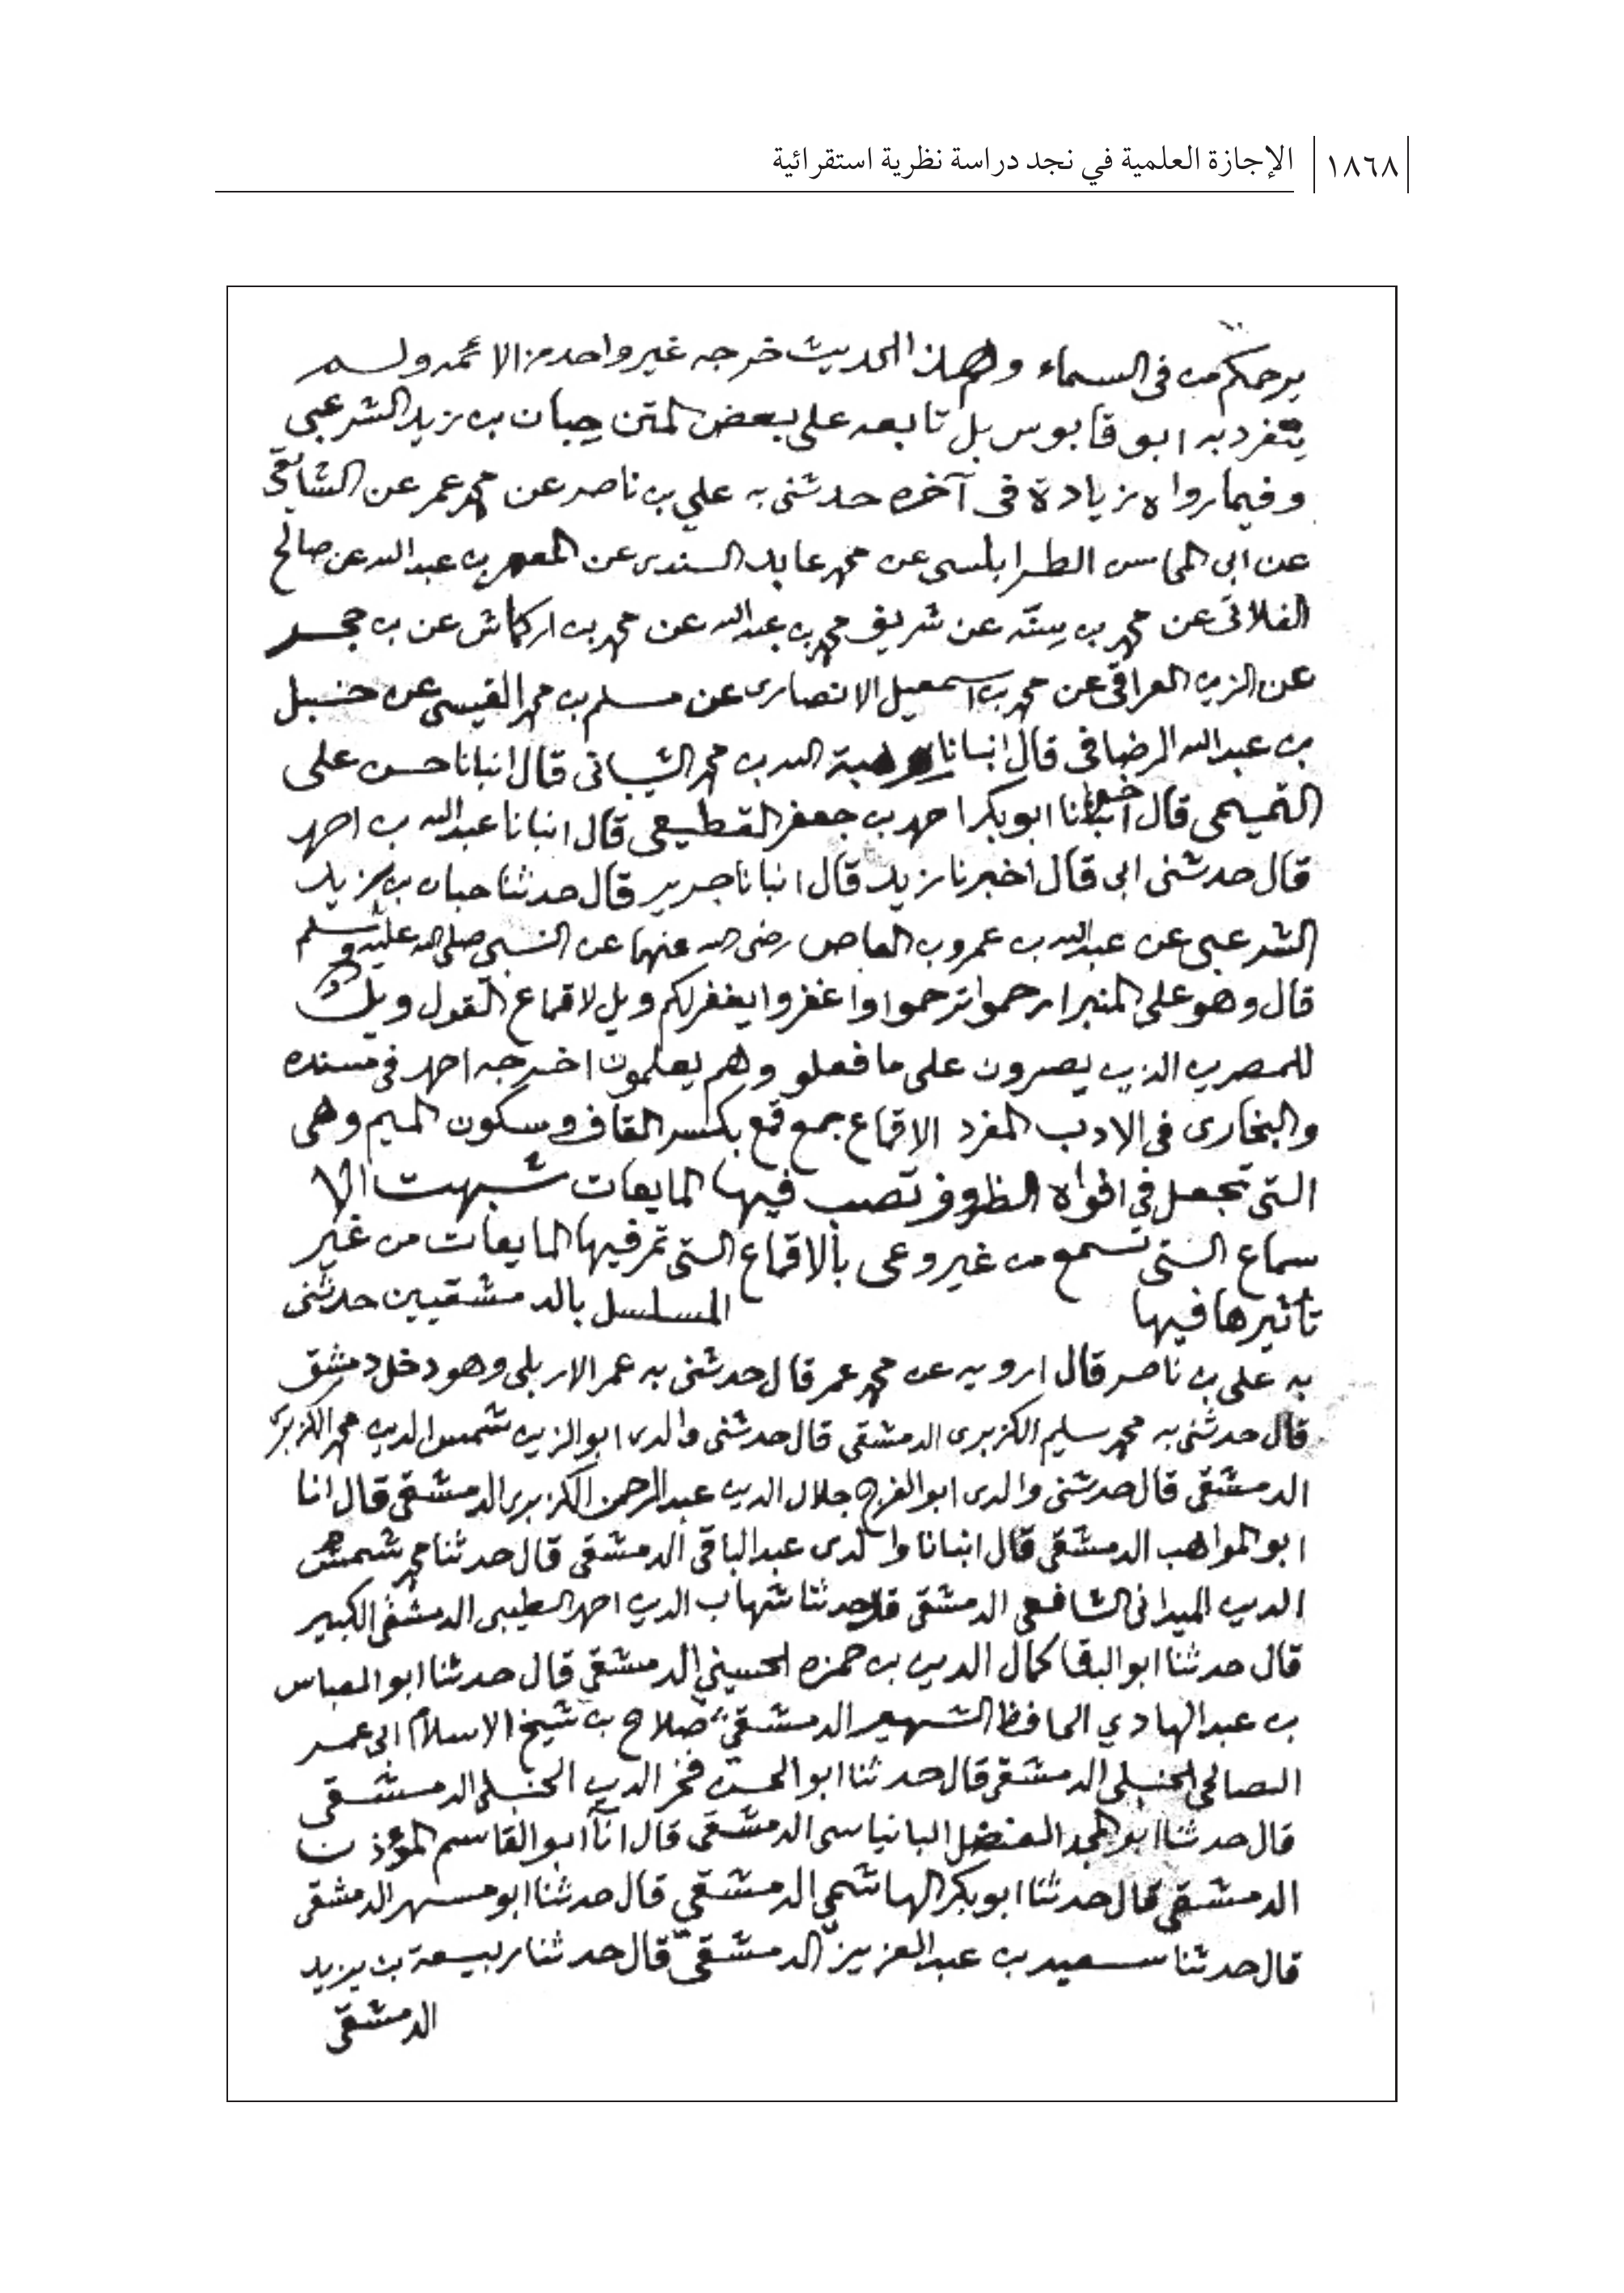 ١٨٦٨ الإجازة العلمية في نجد دراسة نظرية استقرائية
يرحمكم من فى السماء ولهذا الحديث خرجه غير واحد من الائمه ولم
يتفرد به ابو قابوس بل تابعه على بعض المتن حبان بن يزيد الشرعبي
وفيما رواه زيادة فى آخره حدثنى به علي بن ناصر عن محمد عمر عن
عن ابى المحاسن الطرابلسى عن محمد عابد السندى عن المعمر بن عبدالله عن صالح
الفلانى عن محمد بن سنه عن شريف محمد بن عبدالله عن محمد بن اركماش عن بن حجر
عن الزين العراقى عن محمد بن اسمعيل الانصارى عن مسلم بن محمد القيسى عن حنبل
بن عبدالله الرضافى قال انبانا هبة الله بن محمد الشيبانى قال انبانا حسن على
التميمى قال انبانا ابوبكر احمد بن جعفر القطيعى قال انبانا عبدالله بن احمد
قال حدثنى ابى قال اخبرنا يزيد قال انبانا جرير قال حدثنا حبان بن يزيد
الشرعبى عن عبدالله بن عمرو بن العاص رضى الله عنهما عن النبى صلى الله عليه وسلم
قال وهو على المنبر ارحموا ترحموا واغفروا يغفر لكم ويل لاقماع القول ويل
للمصرين الذين يصرون على ما فعلو وهم يعلمون اخرجه احمد فى مسنده
والبخارى فى الادب المفرد الاقماع جمع قمع بكسر القاف وسكون الميم وهى
التى تجعل فى افواه الظروف تصب فيها المايعات شبهت الا
سماع التى تسمع من غير وعى بالاقماع التى تمر فيها المايعات من غير
تأثيرها فيها المسلسل بالدمشقيين حدثنى
به على بن ناصر قال ارويه عن محمد عمر قال حدثنى به عمر الاربلى وهو دخل دمشق
قال حدثنى به محمد سليم الكزبرى الدمشقى قال حدثنى والدى ابو الزين شمس الدين محمد الكزبرى
الدمشقى قال حدثنى والدى ابو الفرج جلال الدين عبدالرحمن الكزبرى الدمشقى قال انا
ابو المواهب الدمشقى قال انبانا والدى عبدالباقى الدمشقى قال حدثنا محمد شمس
الدين الميدانى الشافعى الدمشقى قال حدثنا شهاب الدين احمد الطيبى الدمشقى الكبير
قال حدثنا ابو البقا كمال الدين بن حمزه الحسيني الدمشقى قال حدثنا ابو العباس
بن عبد الهادي الحافظ الشهير الدمشقى صلاح بن شيخ الاسلام ابى عمر
الصالحى الحنبلى الدمشقى قال حدثنا ابو الحسن فخر الدين الحنبلى الدمشقى
قال حدثنا ابو المجد الفضل البانياسى الدمشقى قال انا ابو القاسم المؤذن
الدمشقى قال حدثنا ابوبكر الهاشمي الدمشقى قال حدثنا ابو مسهر الدمشقى
قال حدثنا سعيد بن عبد العزيز الدمشقى قال حدثنا ربيعة بن يزيد
الدمشقى